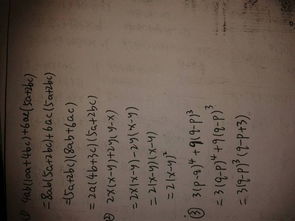 4ab(10a+4bc)+6ac(5a+2bc)
=8ab(5a+2bc)+6ac(5a+2bc)
=(5a+2bc)(8ab+6ac)
=2a(4b+3c)(5a+2bc)
(2) 2x(x-y)+2y(y-x)
=2x(x-y)-2y(x-y)
=2(x-y)(x-y)
=2(x-y)²
(3) 3(p-q)⁴+9(q-p)³
=3(q-p)⁴+9(q-p)³
=3(q-p)³(q-p+3)